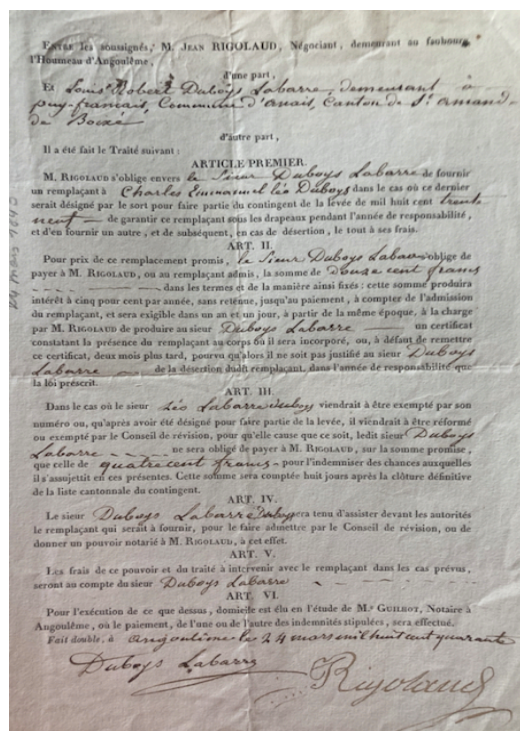 ENTRE les soussignés, M. JEAN RIGOLAUD, Négociant, demeurant au faubourg
l'Houmeau d'Angoulême,
d'une part,
Et Louis Robert Duboys Labarre, demeurant à
puy-français, Commune d'anais, Canton de St. amand-
de Boixe
d'autre part,
Il a été fait le Traité suivant :
ARTICLE PREMIER.
M. RIGOLAUD s'oblige envers le Sieur Duboys Labarre de fournir
un remplaçant à Charles Emmanuel léo Duboys dans le cas où ce dernier
serait désigné par le sort pour faire partie du contingent de la levée de mil huit cent trente
neuf — de garantir ce remplaçant sous les drapeaux pendant l'année de responsabilité,
et d'en fournir un autre, et de subséquent, en cas de désertion, le tout à ses frais.
ART. II.
Pour prix de ce remplacement promis, le Sieur Duboys Labarre s'oblige de
payer à M. RIGOLAUD, ou au remplaçant admis, la somme de douze cent francs
dans les termes et de la manière ainsi fixés : cette somme produira
intérêt à cinq pour cent par année, sans retenue, jusqu'au paiement, à compter de l'admission
du remplaçant, et sera exigible dans un an et un jour, à partir de la même époque, à la charge
par M. RIGOLAUD de produire au sieur Duboys Labarre — un certificat
constatant la présence du remplaçant au corps où il sera incorporé, ou, à défaut de remettre
ce certificat, deux mois plus tard, pourvu qu'alors il ne soit pas justifié au sieur Duboys
Labarre — de la désertion dudit remplaçant, dans l'année de responsabilité que
la loi prescrit.
ART. III.
Dans le cas où le sieur Léo Labarre Duboys viendrait à être exempté par son
numéro ou, qu'après avoir été désigné pour faire partie de la levée, il viendrait à être réformé
ou exempté par le Conseil de révision, pour qu'elle cause que ce soit, ledit sieur Duboys
Labarre ne sera obligé de payer à M. RIGOLAUD, sur la somme promise,
que celle de quatre cent francs - pour l'indemniser des chances auxquelles
il s'assujetit en ces présentes. Cette somme sera comptée huit jours après la clôture définitive
de la liste cantonnale du contingent.
ART. IV.
Le sieur Duboys Labarre sera tenu d'assister devant les autorités
le remplaçant qui serait à fournir, pour le faire admettre par le Conseil de révision, ou de
donner un pouvoir notarié à M. RIGOLAUD, à cet effet.
ART. V.
Les frais de ce pouvoir et du traité à intervenir avec le remplaçant dans les cas prévus,
seront au compte du sieur Duboys Labarre
ART. VI.
Pour l'exécution de ce que dessus, domicile est élu en l'étude de Me GUILHOT, Notaire à
Angoulême, où le paiement, de l'une ou de l'autre des indemnités stipulées, sera effectué.
Fait double, à angoulême les 24 mars mil huit cent quarante
Duboys Labarre
Rigolaud
24 mars 1840